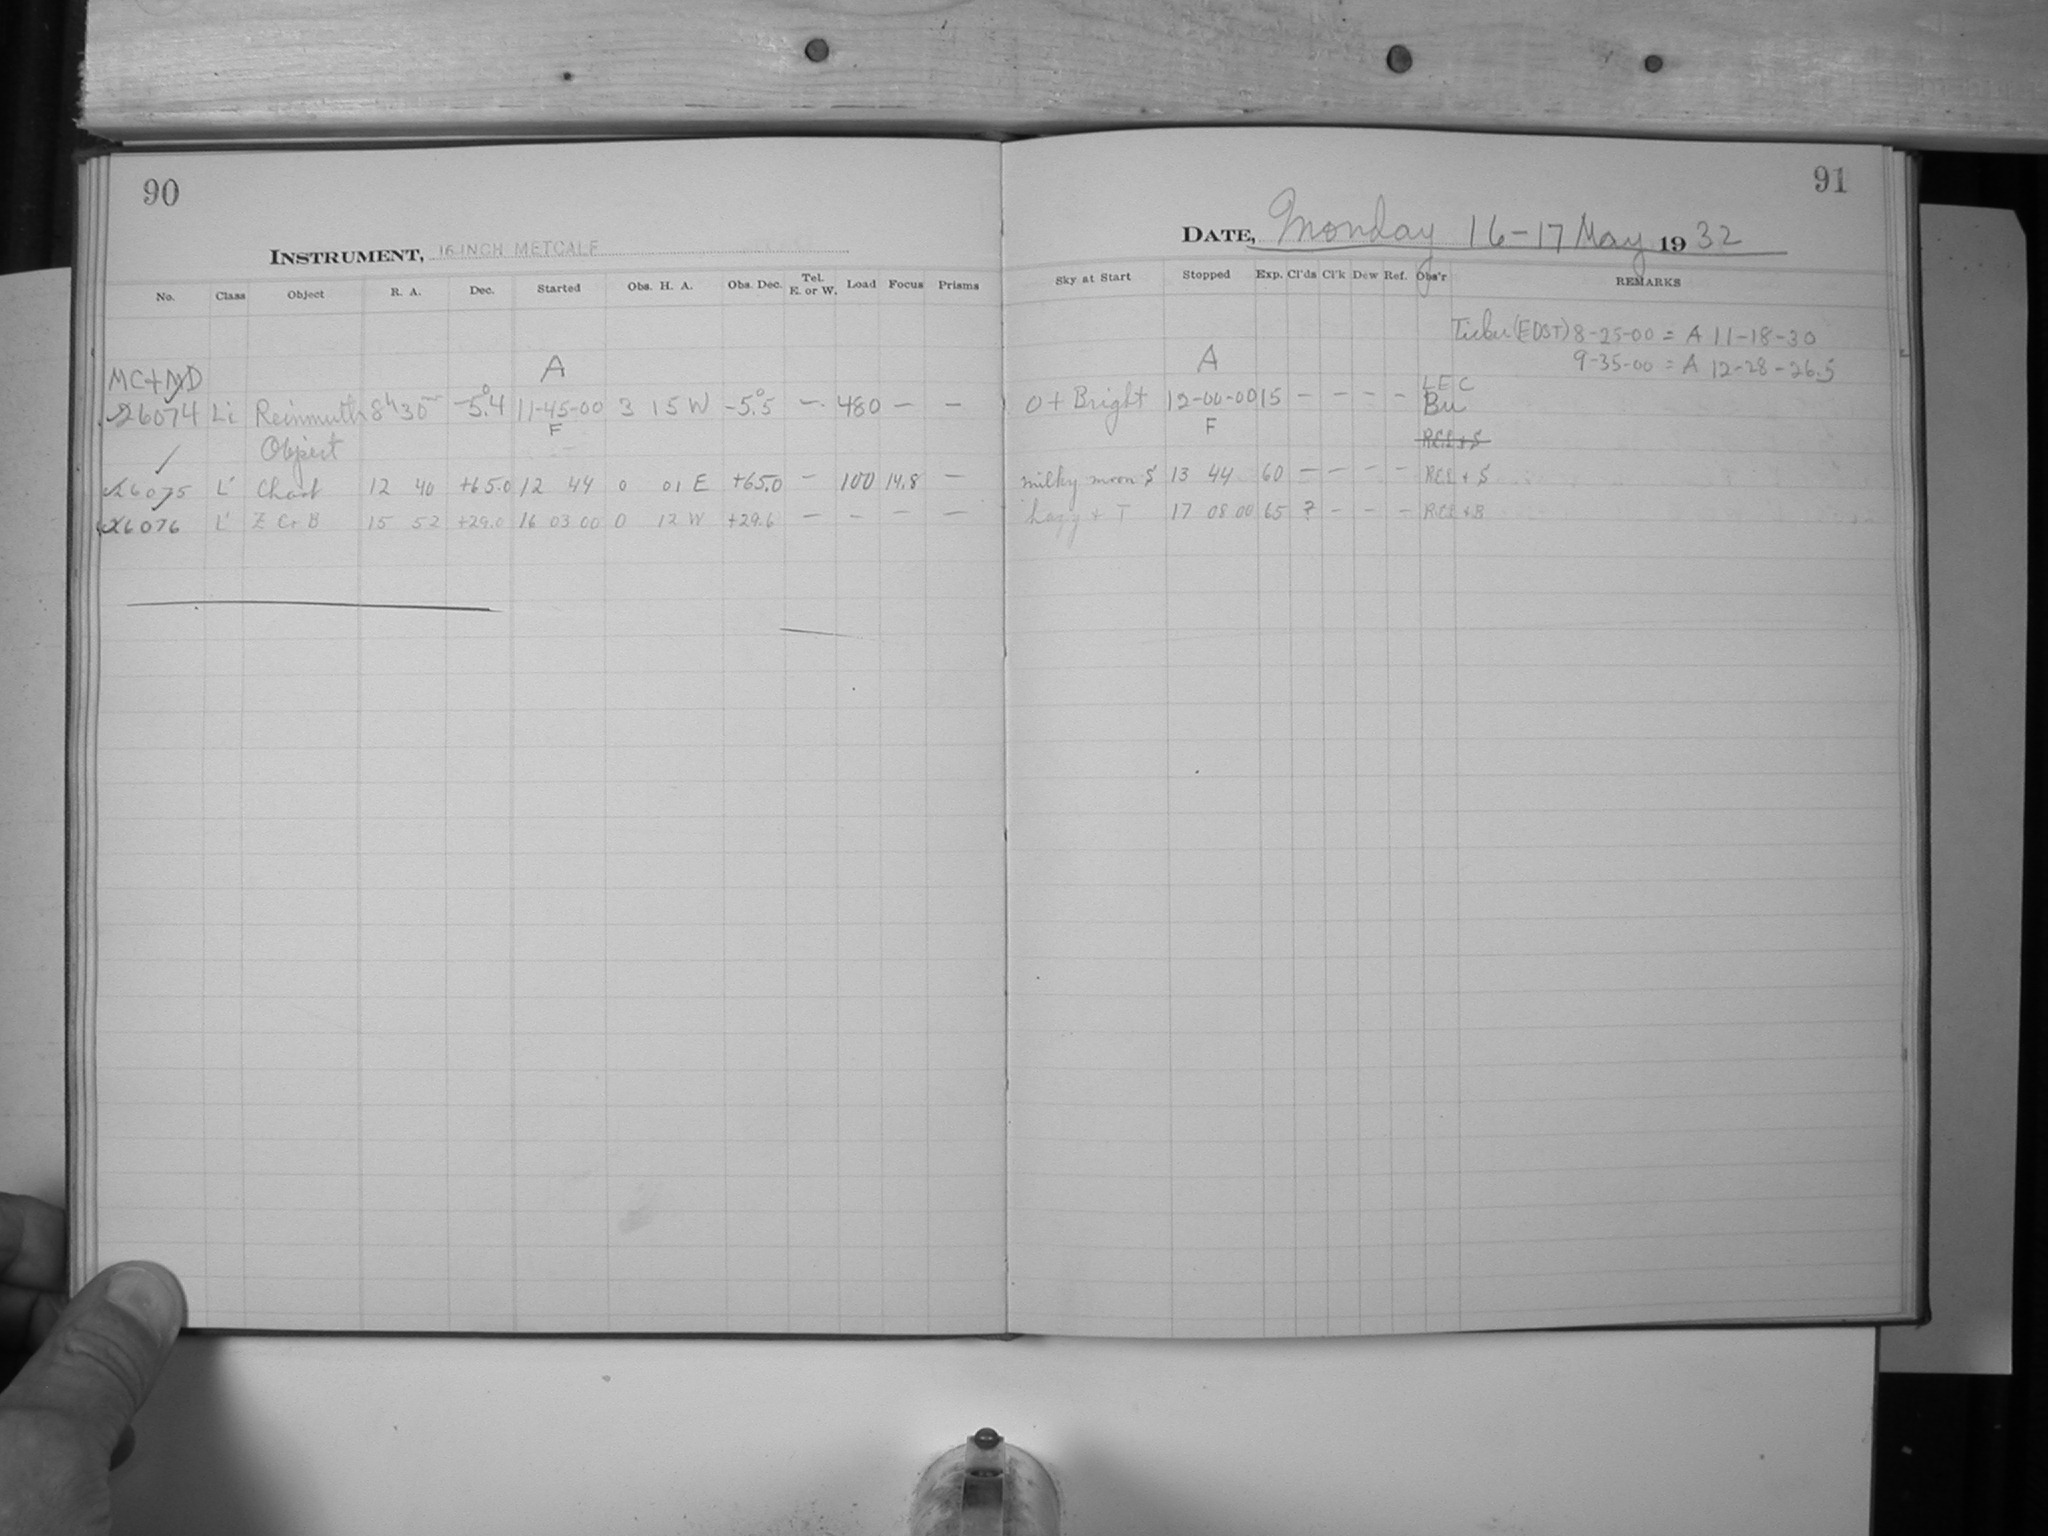 90
INSTRUMENT, 16-INCH METCALF
No. Class Object R. A. Dec. Started Obs. H. A. Obs. Dec. Tel. E. or W. Load Focus Prisms
A
MC+
26074 Li Reinmuth 8h 30m -5.°4 11-45-00 3 15 W -5.°5 — 480 — —
Object F
26075 L' Chart 12 40 +65.0 12 44 0 01 E +65.0 — 100 14.8 —
26076 L' Z Cr B 15 52 +29.0 16 03 00 0 12 W +29.6 — — — —
91
DATE, Monday 16-17 May 1932
Sky at Start Stopped Exp. Cl'ds Cl'k Dew Ref. Obs'r REMARKS
Ticker (EDST) 8-25-00 = A 11-18-30
9-35-00 = A 12-28-26.5
A
LEC
0+ Bright 12-00-00 15 — — — — Bu
F
milky moon 5 13 44 60 — — — — REL + S
hazy + T 17 08 00 65 ? — — — REL + B